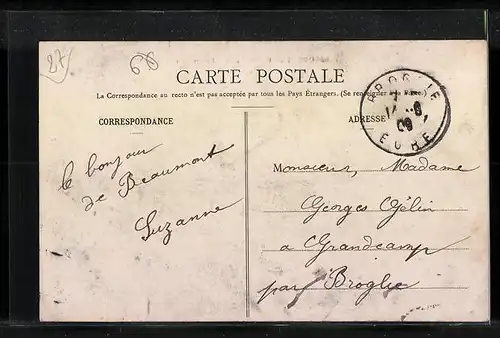 27
CARTE POSTALE
La Correspondance au recto n'est pas acceptée par tous les Pays Étrangers. (Se renseigner à la Poste.)
CORRESPONDANCE
ADRESSE
BROGLIE
09
EURE
le bonjour
de Beaumont
Suzanne
Monsieur, Madame
Georges Gélin
a Grandcamp
par Broglie